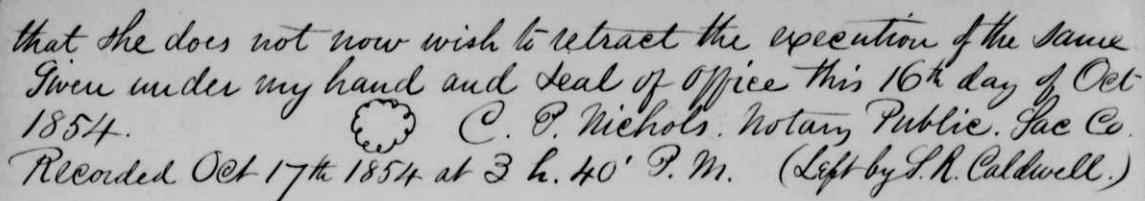 that she does not now wish to retract the execution of the same
Given under my hand and seal of office this 16th day of Oct
1854. C. P. Nichols. Notary Public. Sac Co.
Recorded Oct 17th 1854 at 3 h. 40' P. M. (Left by S. R. Caldwell.)